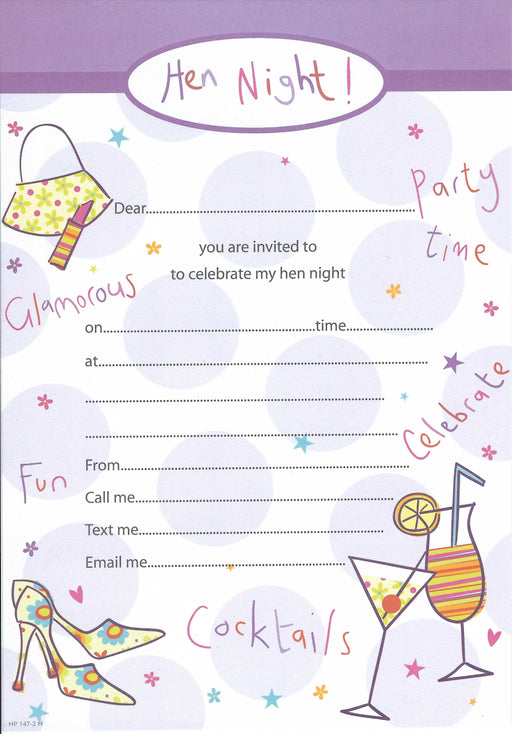 Hen Night!
Party
time
Dear
you are invited to
to celebrate my hen night
Glamorous
on time
at
Celebrate
From
Fun
Call me
Text me
Email me
Cocktails
HP 147-2 H